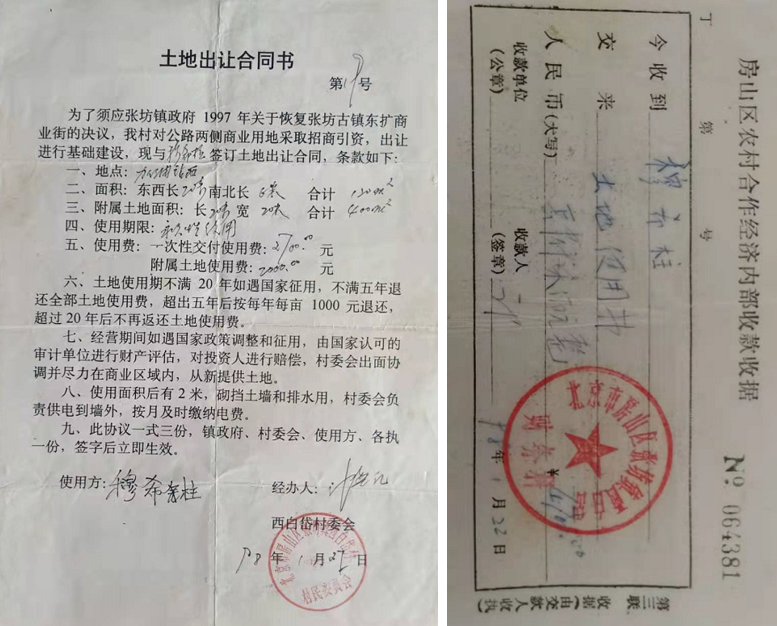 土地出让合同书
第 号
为了须应张坊镇政府 1997 年关于恢复张坊古镇东扩商
业街的决议，我村对公路两侧商业用地采取招商引资，出让
进行基础建设，现与 签订土地出让合同，条款如下：
一、地点：加油站西
二、面积：东西长20米南北长6米 合计 120m²
三、附属土地面积：长20米宽20米 合计 400m²
四、使用期限：永久性使用
五、使用费：一次性交付使用费：2700.00 元
附属土地使用费：2000.00 元
六、土地使用期不满 20 年如遇国家征用，不满五年退
还全部土地使用费，超出五年后按每年每亩 1000 元退还，
超过 20 年后不再返还土地使用费。
七、经营期间如遇国家政策调整和征用，由国家认可的
审计单位进行财产评估，对投资人进行赔偿，村委会出面协
调并尽力在商业区域内，从新提供土地。
八、使用面积后有 2 米，砌挡土墙和排水用，村委会负
责供电到墙外，按月及时缴纳电费。
九、此协议一式三份，镇政府、村委会、使用方、各执
一份，签字后立即生效。
使用方：穆希 柱 经办人：
西白岱村委会
98 年 1 月 22 日
村民委员会
房山区农村合作经济内部收款收据
丁 第 号 № 064381
今收到 穆希柱
交来 土地使用书
人民币（大写）
收款单位（公章） 收款人（签章）
98 年 1 月 22 日
财务
第三联
收据（由交款人收执